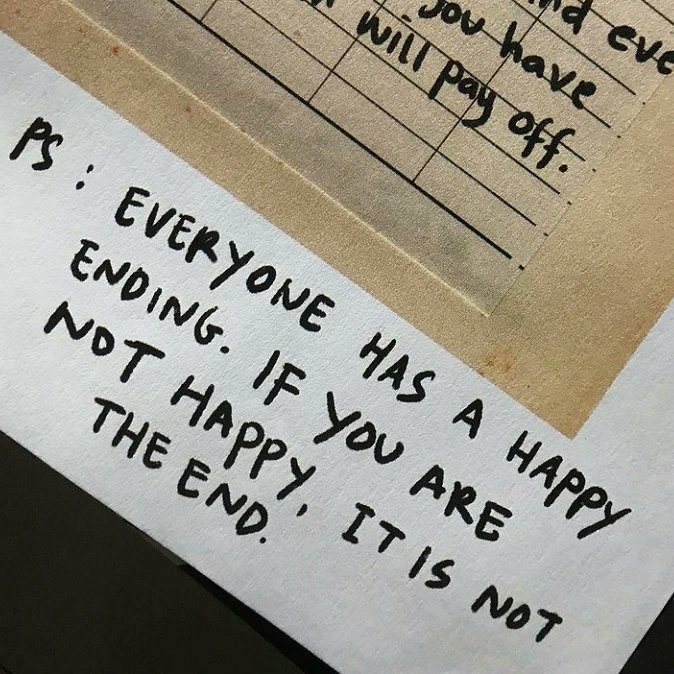 and eve
you have
will pay off.
PS : EVERYONE HAS A HAPPY
ENDING. IF YOU ARE
NOT HAPPY, IT IS NOT
THE END.